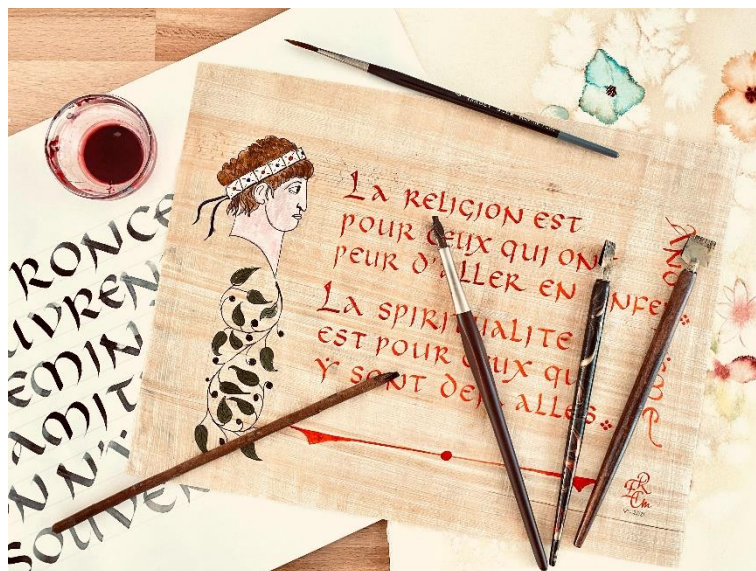 RONCE
UVREN
EMIN
AMIT
N N'Y
SOUVE
LA RELIGION EST
POUR CEUX QUI ON
PEUR D'ALLER EN ENFE
LA SPIRITUALITE
EST POUR CEUX QU
Ÿ SONT ALLES